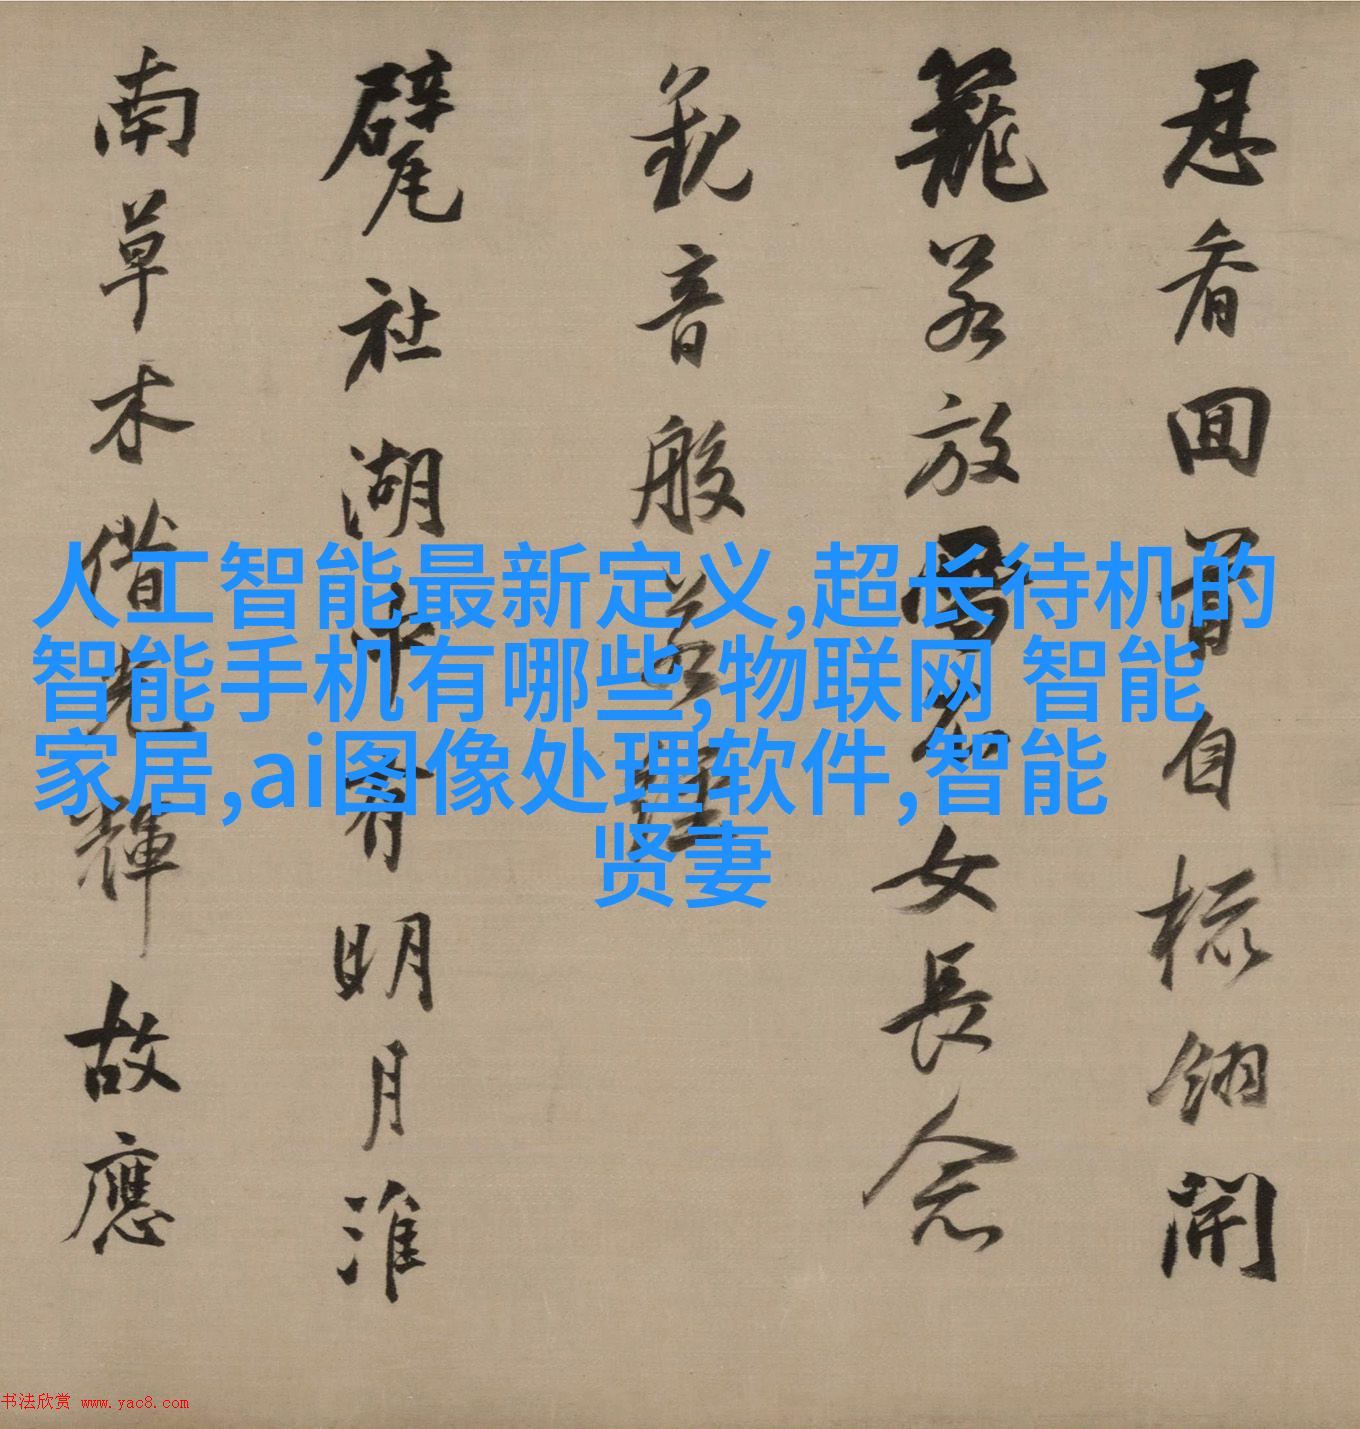 忍看回首自梳翎開
籠若放雪衣女長念
觀音般若經
甓社湖中有明月淮
南草木借光輝故應
人工智能最新定义,超长待机的
智能手机有哪些,物联网 智能
家居,ai图像处理软件,智能
贤妻
书法欣赏 www.yac8.com